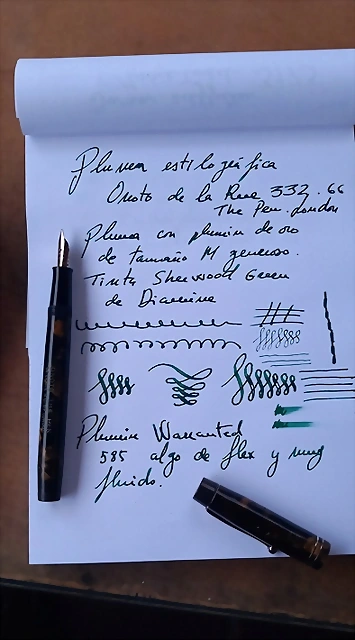 Pluma estilográfica
Onoto de la Rue 332.66
The Pen. London
Pluma con plumin de oro
de tamaño M generoso.
Tinta Sherwood Green
de Diamine
Plumin Warranted
585 algo de flex y muy
fluido.